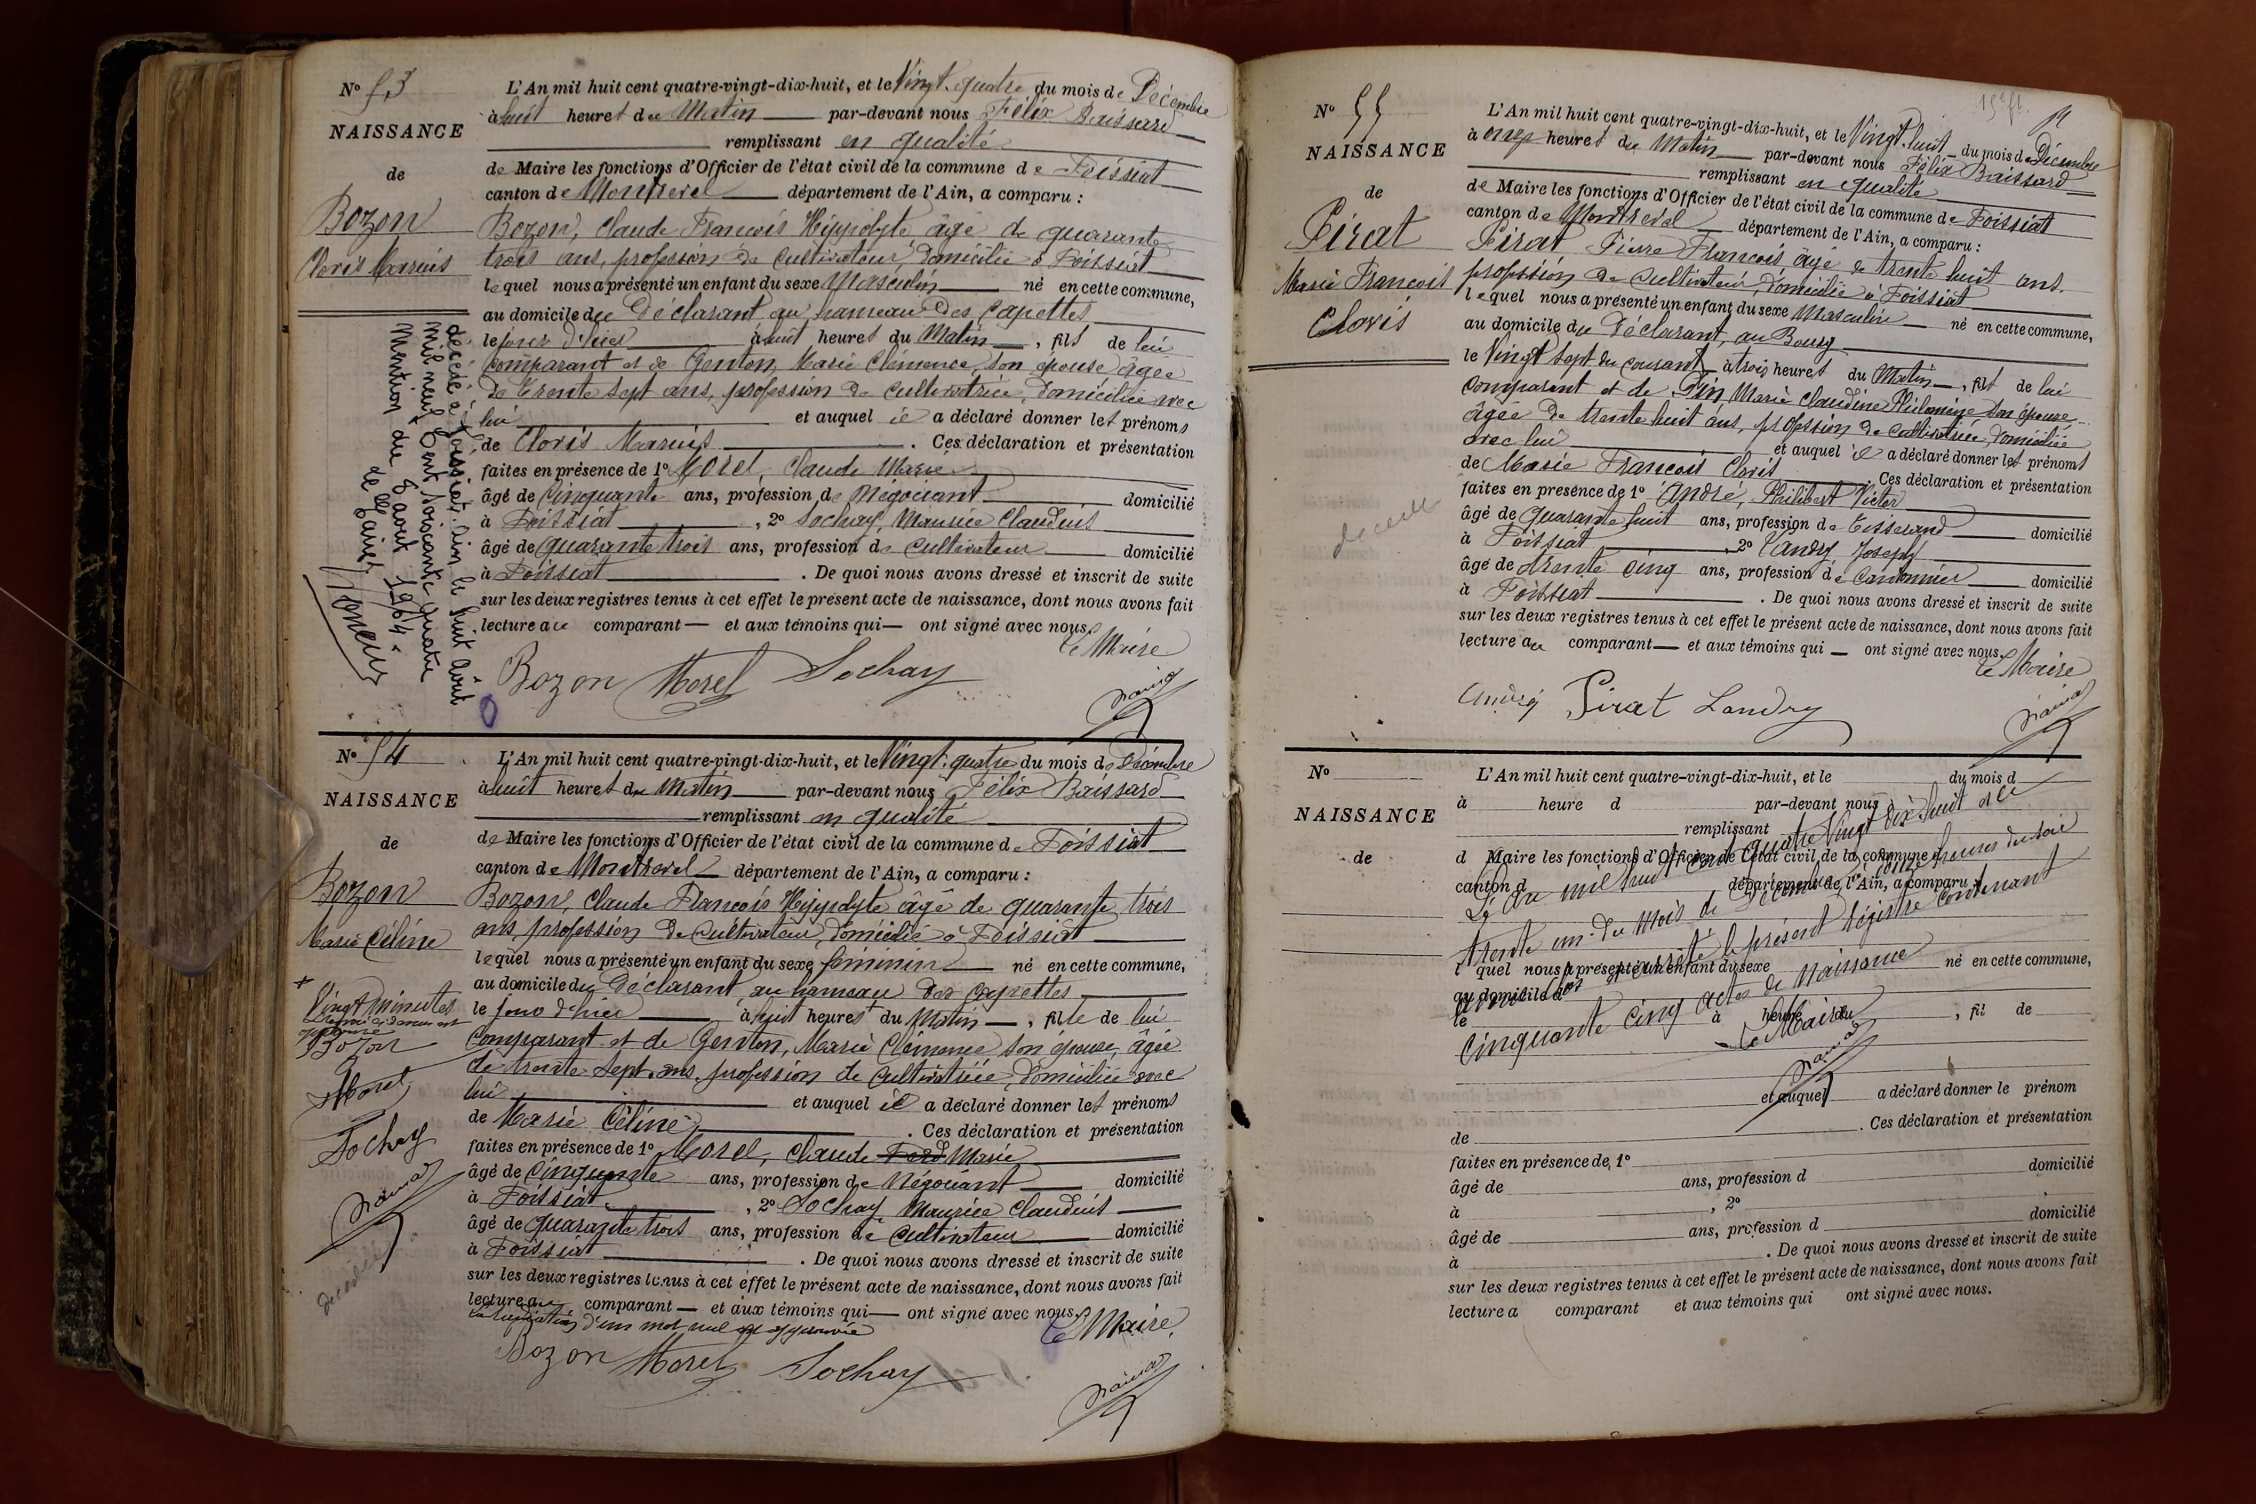 N° 53
NAISSANCE
de
Bozon
Clovis Marius
L'An mil huit cent quatre-vingt-dix-huit, et le Vingt-quatre du mois de Décembre
à huit heures du Matin par-devant nous Félix Baissard
remplissant en qualité
de Maire les fonctions d'Officier de l'état civil de la commune de Foissiat
canton de Montrevel département de l'Ain, a comparu :
Bozon, Claude François Hippolyte âgé de quarante
trois ans, profession de cultivateur, domicilié à Foissiat
lequel nous a présenté un enfant du sexe Masculin né en cette commune,
au domicile du Déclarant au hameau des Capettes
le jour d'hier à huit heures du Matin, fils de lui
comparant et de Genton, Marie Clémence, son épouse âgée
de trente sept ans, profession de cultivatrice, domiciliée avec
lui et auquel il a déclaré donner les prénoms
de Clovis Marius. Ces déclaration et présentation
faites en présence de 1° Morel, Claude Marie
âgé de Cinquante ans, profession de Négociant domicilié
à Foissiat, 2° Sochay, Maurice Claudius
âgé de quarante trois ans, profession de cultivateur domicilié
à Foissiat. De quoi nous avons dressé et inscrit de suite
sur les deux registres tenus à cet effet le présent acte de naissance, dont nous avons fait
lecture au comparant et aux témoins qui ont signé avec nous.
Le Maire
Bozon Morel Sochay
décédé à Foissiat. Ain le huit août
mil neuf cent soixante quatre
Mention du 8 août 1964
Le Maire
N° 54
NAISSANCE
de
Bozon
Marie Céline
L'An mil huit cent quatre-vingt-dix-huit, et le Vingt-quatre du mois de Décembre
à huit heures du Matin par-devant nous Félix Baissard
remplissant en qualité
de Maire les fonctions d'Officier de l'état civil de la commune de Foissiat
canton de Montrevel département de l'Ain, a comparu :
Bozon, Claude François Hippolyte âgé de quarante trois
ans, profession de cultivateur, domicilié à Foissiat
lequel nous a présenté un enfant du sexe féminin né en cette commune,
au domicile du Déclarant, au hameau des Capettes
le jour d'hier à huit heures du Matin, fille de lui
comparant et de Genton, Marie Clémence son épouse, âgée
de trente sept ans, profession de cultivatrice, domiciliée avec
lui et auquel il a déclaré donner les prénoms
de Marie Céline. Ces déclaration et présentation
faites en présence de 1° Morel, Claude Marie
âgé de Cinquante ans, profession de Négociant domicilié
à Foissiat, 2° Sochay Maurice Claudius
âgé de quarante trois ans, profession de cultivateur domicilié
à Foissiat. De quoi nous avons dressé et inscrit de suite
sur les deux registres tenus à cet effet le présent acte de naissance, dont nous avons fait
lecture au comparant et aux témoins qui ont signé avec nous.
d'un mot nul approuvée
Le Maire,
Bozon Morel Sochay
Vingt minutes
Bozon
Morel
Sochay
décédée
N° 55
NAISSANCE
de
Pirat
Marie François
Clovis
décédé
L'An mil huit cent quatre-vingt-dix-huit, et le Vingt-huit du mois de Décembre
à onze heures du Matin par-devant nous Félix Baissard
remplissant en qualité
de Maire les fonctions d'Officier de l'état civil de la commune de Foissiat
canton de Montrevel département de l'Ain, a comparu :
Pirat Pierre François âgé de trente huit ans.
profession de cultivateur, domicilié à Foissiat
lequel nous a présenté un enfant du sexe Masculin né en cette commune,
au domicile du Déclarant, au Bourg
le Vingt sept du courant à trois heures du Matin, fils de lui
comparant et de Pin, Marie Claudine Philomine son épouse
âgée de trente huit ans, profession de cultivatrice, domiciliée
avec lui et auquel il a déclaré donner les prénoms
de Marie François Clovis Ces déclaration et présentation
faites en présence de 1° André, Philibert Victor
âgé de quarante huit ans, profession de Tisserand domicilié
à Foissiat, 2° Landry Joseph
âgé de trente cinq ans, profession de Cantonnier domicilié
à Foissiat. De quoi nous avons dressé et inscrit de suite
sur les deux registres tenus à cet effet le présent acte de naissance, dont nous avons fait
lecture au comparant et aux témoins qui ont signé avec nous.
Le Maire
André Pirat Landry
N°
NAISSANCE
de
L'An mil huit cent quatre-vingt-dix-huit, et le du mois d
à heure d par-devant nous
remplissant
d Maire les fonctions d'Officier de l'état civil de la commune d
canton d département de l'Ain, a comparu :
L'An mil huit cent quatre Vingt dix huit et le
trente un du mois de Décembre à onze heures du soir
nous avons arrêté le présent Régistre contenant
Cinquante cinq actes de Naissance
Le Maire
l quel nous a présenté un enfant du sexe né en cette commune,
au domicile d
le à heure du, fil de
et auquel a déclaré donner le prénom
de. Ces déclaration et présentation
faites en présence de 1°
âgé de ans, profession d domicilié
à, 2°
âgé de ans, profession d domicilié
à. De quoi nous avons dressé et inscrit de suite
sur les deux registres tenus à cet effet le présent acte de naissance, dont nous avons fait
lecture a comparant et aux témoins qui ont signé avec nous.